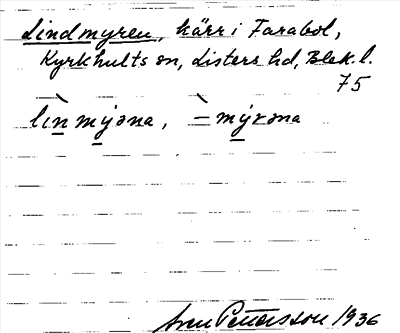 Lindmyren, kärr i Farabol,
Kyrkhults sn, Listers hd, Blek. l.
75
lìn mýəna, `= mýrəna
Pettersson 1936